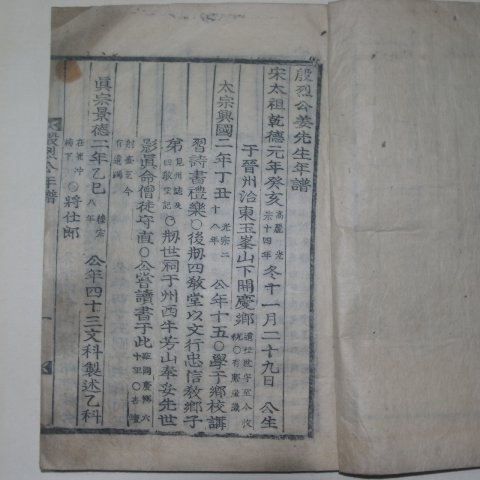 殷烈公姜先生年譜
宋太祖乾德元年癸亥 高麗光宗十四年 冬十一月二十九日公生
于晉州治東玉峯山下開慶鄉 遺址世守至今
太宗興國二年丁丑 光宗二十八年 公年十五○學于鄉校講
習詩書禮樂○後刱四敎堂以文行忠信敎鄉子
弟 見州誌及四敎堂記 ○刱世祠于州西牛芳山奉妥先世
影眞命僧徒守直○公嘗讀書于此
眞宗景德二年乙巳 穆宗八年 公年四十三文科製述乙科
將仕郎
殷烈公年譜
一